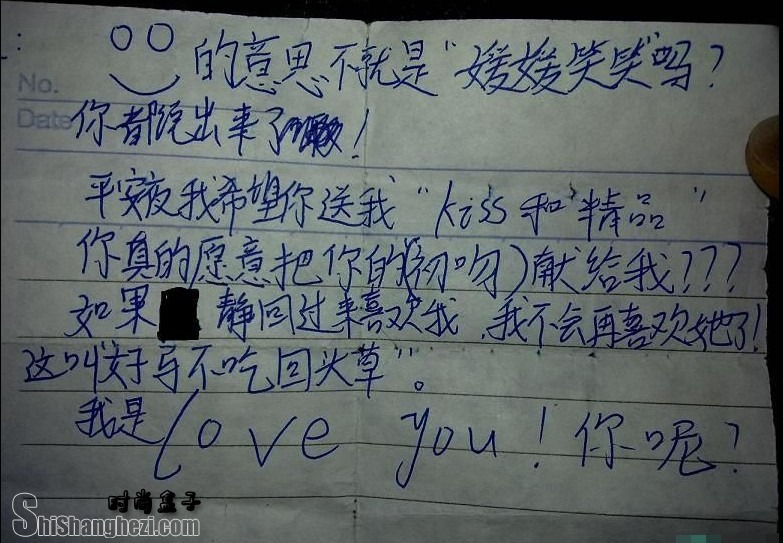 的意思不就是“媛媛笑笑”吗？
No.
Date
你都说出来了！
平安夜我希望你送我“kiss和精品”
你真的愿意把你的(初吻)献给我???
如果 静回过来喜欢我，我不会再喜欢她了!
这叫“好马不吃回头草”。
我是love you！你呢？
时尚盒子
ShiShanghezi.com